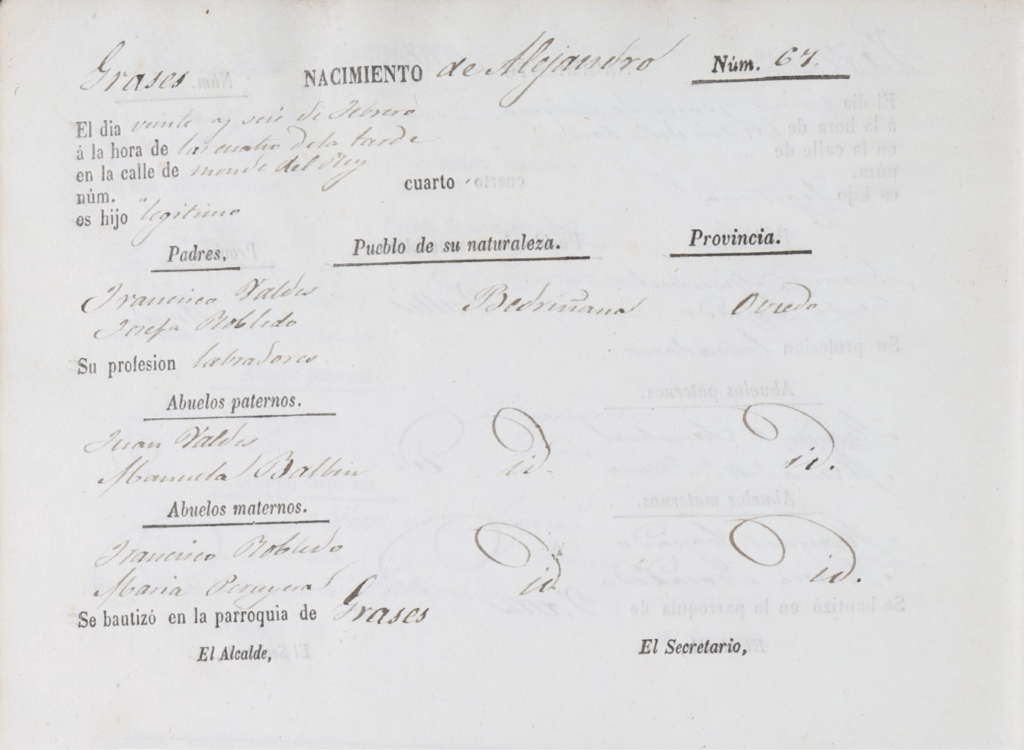 Grases NACIMIENTO de Alejandro Núm. 67.
El dia veinte y seis de Febrero
á la hora de las cuatro de la tarde
en la calle de monte del Rey
núm. " cuarto "
es hijo legitimo
Padres, Pueblo de su naturaleza. Provincia.
Francisco Valdes Bedriñana Oviedo
Josefa Robledo
Su profesion labradores
Abuelos paternos.
Juan Valdes
Manuela Balbin id. id.
Abuelos maternos.
Francisco Robledo
Maria id. id.
Se bautizó en la parroquia de Grases
El Alcalde, El Secretario,